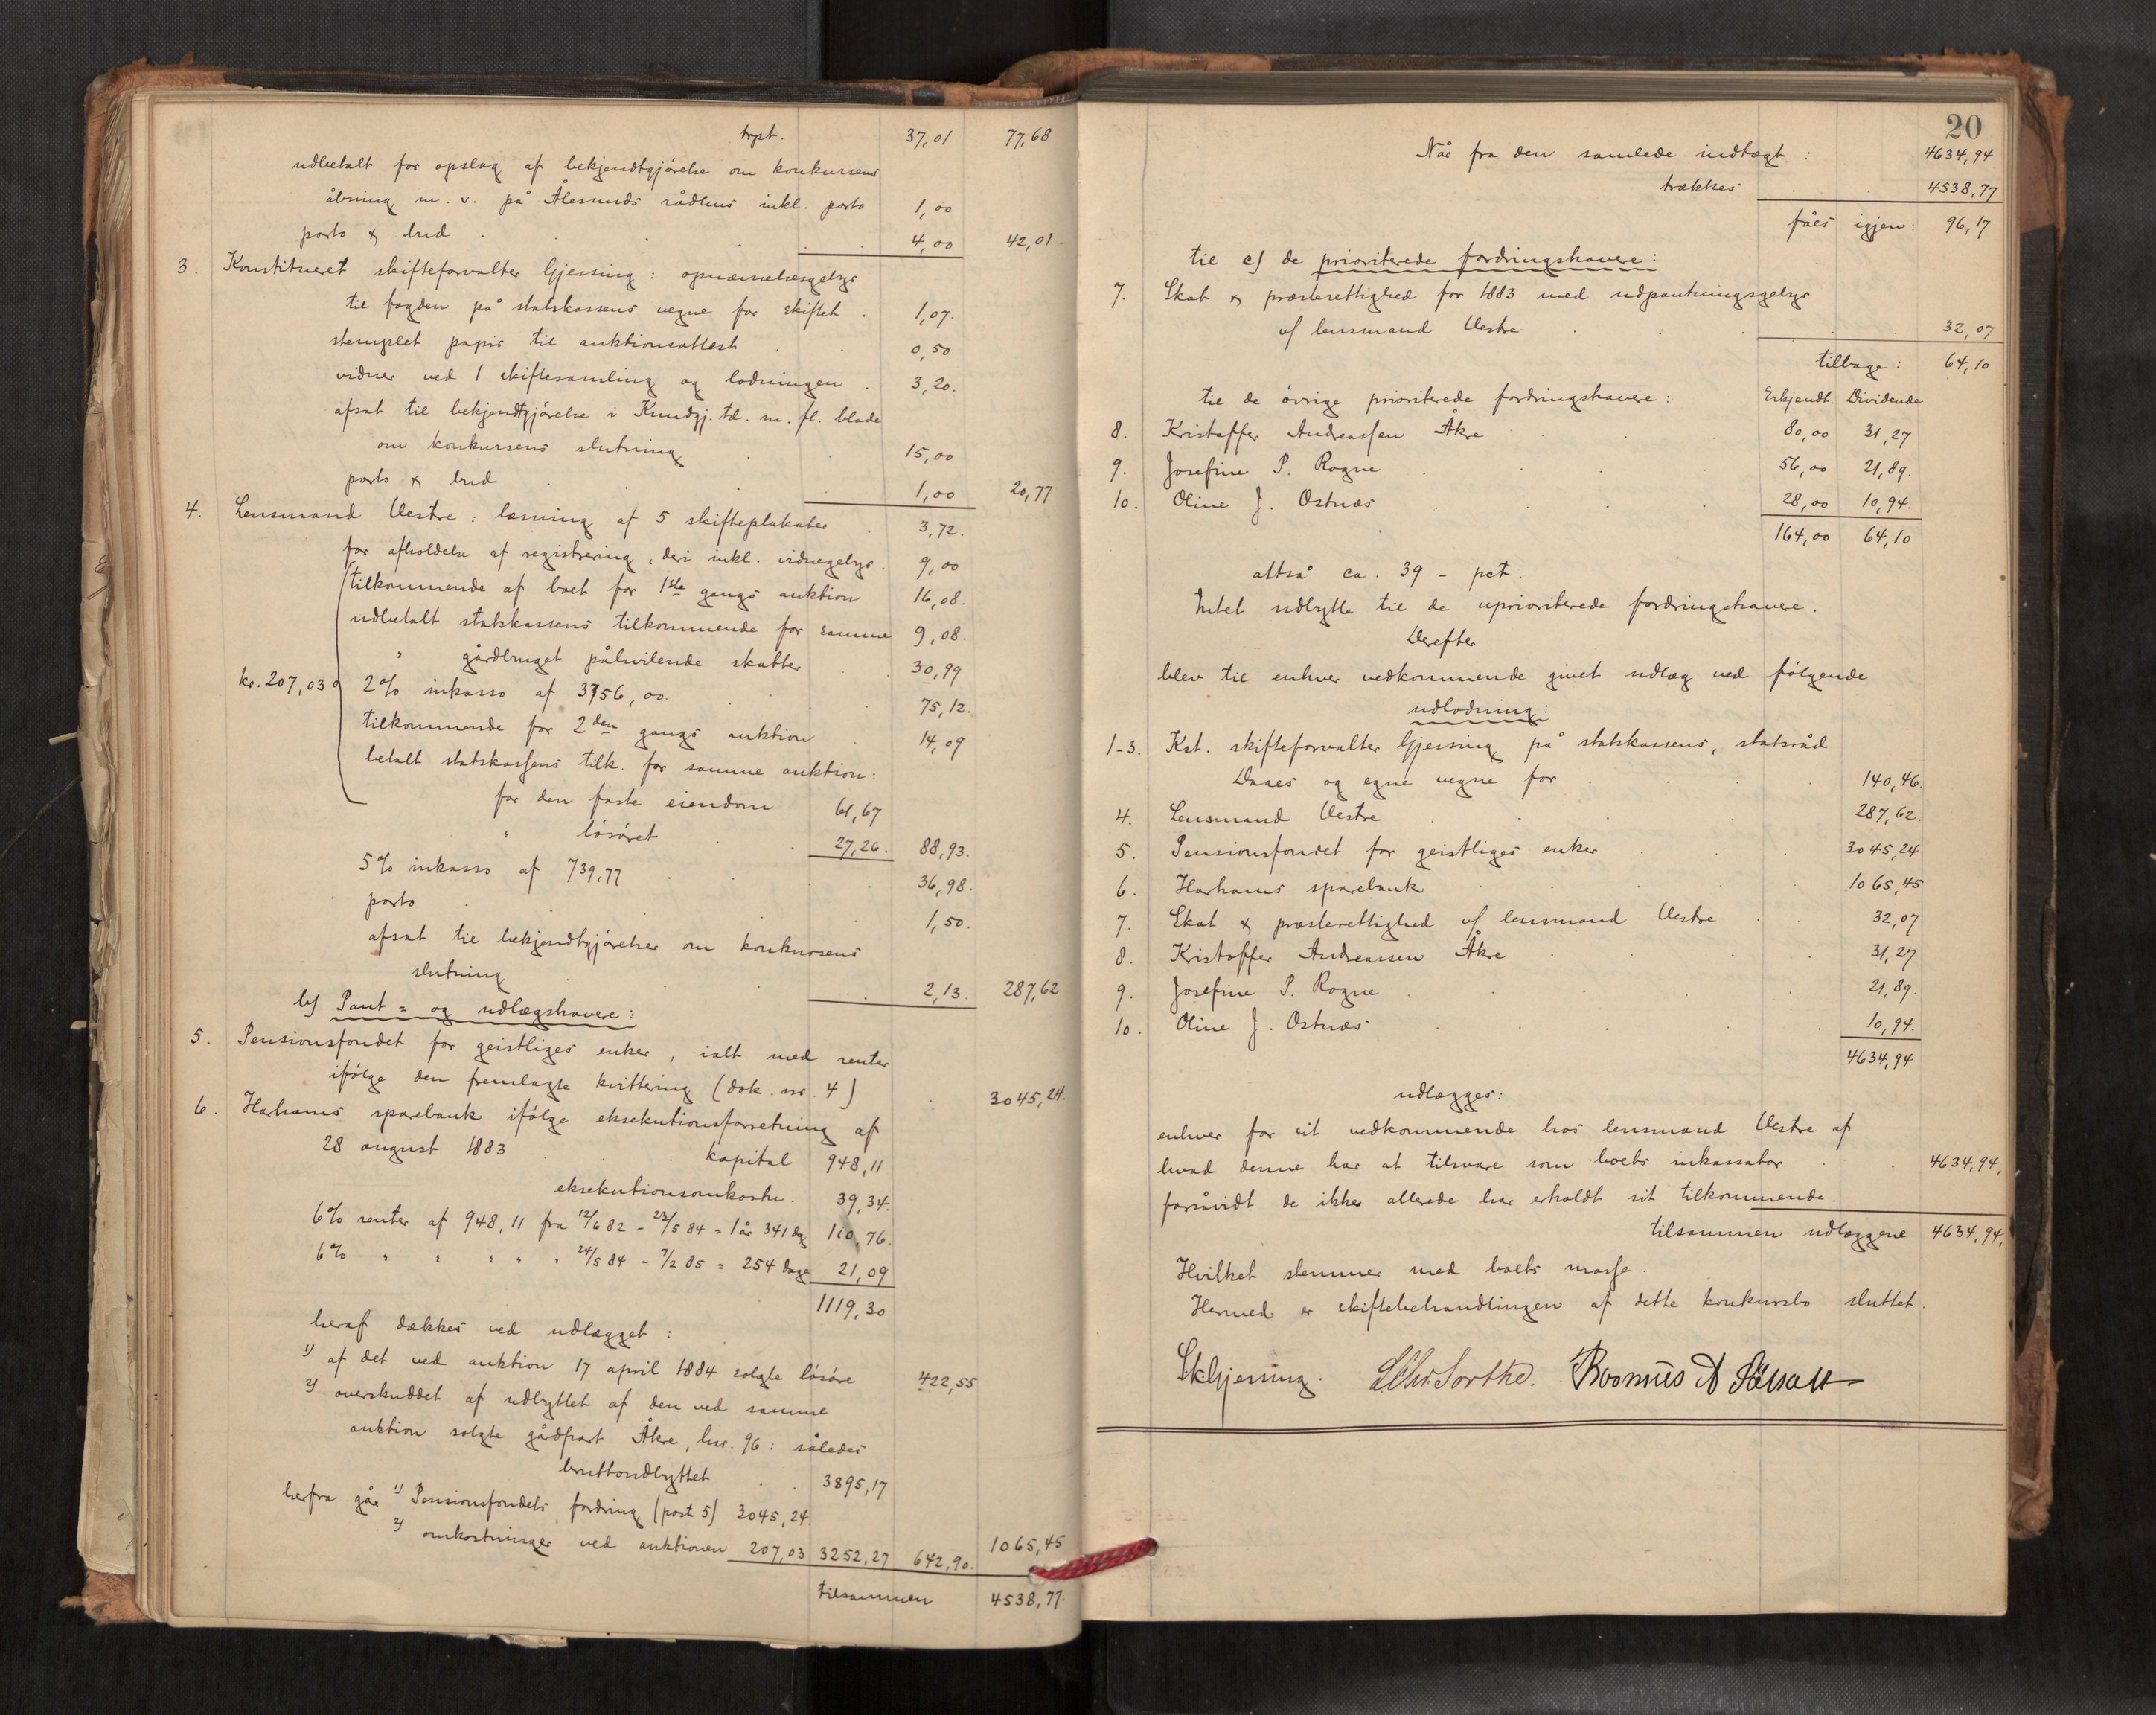 trpt. 37,01 77,68
udbetalt for opslag af bekjendtgjørelse om konkursens
åbning m. v. på Ålesunds rådhus inkl. porto 1,00
porto & bud . . . 4,00 42,01
3. Konstitueret skifteforvalter Gjessing: opnævnelsesgebyr
til fogden på statskassens vegne for skiftet . 1,07.
stemplet papir til auktionsattest . . 0,50
vidner ved 1 skiftesamling og lodningen . 3,20.
afsat til bekjendtgjørelse i Kundgj. td. m. fl. blade
om konkursens slutning . . 15,00
porto & bud . . . 1,00 20,77
4. Lensmand Vestre: læsning af 5 skifteplakater . 3,72.
for afholdelse af registrering, deri inkl. vidnegebyr. 9,00
tilkommende af boet for 1ste gangs auktion 16,08.
udbetalt statskassens tilkommende for samme 9,08.
" gårdbruget påhvilende skatter . 30,99
kr. 207,03 2% inkasso af 3756,00. . . 75,12.
tilkommende for 2den gangs auktion . 14,09
betalt statskassens tilk. for samme auktion:
for den faste eiendom 61,67
" løsøret . . 27,26. 88,93.
5% inkasso af 739,77 . . . 36,98.
porto . . . . 1,50.
afsat til bekjendtgjørelser om konkursens
slutning . . 2,13. 287,62
b) Pant= og udlægshavere:
5. Pensionsfondet for geistliges enker, ialt med renter
ifølge den fremlagte kvittering (dok. nr. 4) . 3045,24.
6. Harhams sparebank ifølge eksekutionsforretning af
28 august 1883 . kapital 948,11
eksekutionsomkostn. 39,34.
6% renter af 948,11 fra 12/6 82 - 23/5 84 = 1 år 341 dag 110,76.
6% " " " " " 24/5 84 - 7/2 85 = 254 dage 21,09
1119,30
heraf dækkes ved udlægget:
1) af det ved auktion 17 april 1884 solgte løsøre 422,55
2) overskuddet af udbyttet af den ved samme
auktion solgte gårdpart Åkre, lnr. 96: således
bruttoudbyttet . . 3895,17
herfra går 1) Pensionsfondets fordring (post 5) 3045,24.
2) omkostninger ved auktionen 207,03 3252,27 642,90. 1065,45
tilsammen 4538,77.
20
Når fra den samlede indtægt : 4634,94
trækkes . . 4538,77
fåes igjen: 96,17
til c) de prioriterede fordringshavere:
7. Skat & præsterettighed for 1883 med udpantningsgebyr
v/ lensmand Vestre . . . 32,07
tilbage: 64,10
til de øvrige prioriterede fordringshavere: Erkjendt. Dividende
8. Kristoffer Andreassen Åkre . . 80,00 31,27
9. Josefine P. Rogne . . . 56,00 21,89.
10. Oline J. Ostnæs . . . 28,00 10,94.
164,00 64,10
altså ca. 39 - pct.
Intet udbytte til de uprioriterede fordringshavere.
Derefter
blev til enhver vedkommende givet udlæg ved følgende
udlodning:
1-3. Kst. skifteforvalter Gjessing på statskassens, statsråd
Daaes og egne vegne for . . 140,46.
4. Lensmand Vestre . . . 287,62.
5. Pensionsfondet for geistliges enker . . 3045,24
6. Harhams sparebank . . . 1065,45
7. Skat & præsterettighed v/ lensmand Vestre . . 32,07
8. Kristoffer Andreassen Åkre . . . 31,27
9. Josefine P. Rogne . . . 21,89.
10. Oline J. Ostnæs . . . 10,94.
4634,94
udlægges:
enhver for sit vedkommende hos lensmand Vestre af
hvad denne har at tilsvare som boets inkassator . . 4634,94,
forsåvidt de ikke allerede har erholdt sit tilkommende.
tilsammen udlæggene 4634,94,
Hvilket stemmer med boets masse.
Hermed er skiftebehandlingen af dette konkursbo sluttet.
SkGjessing.